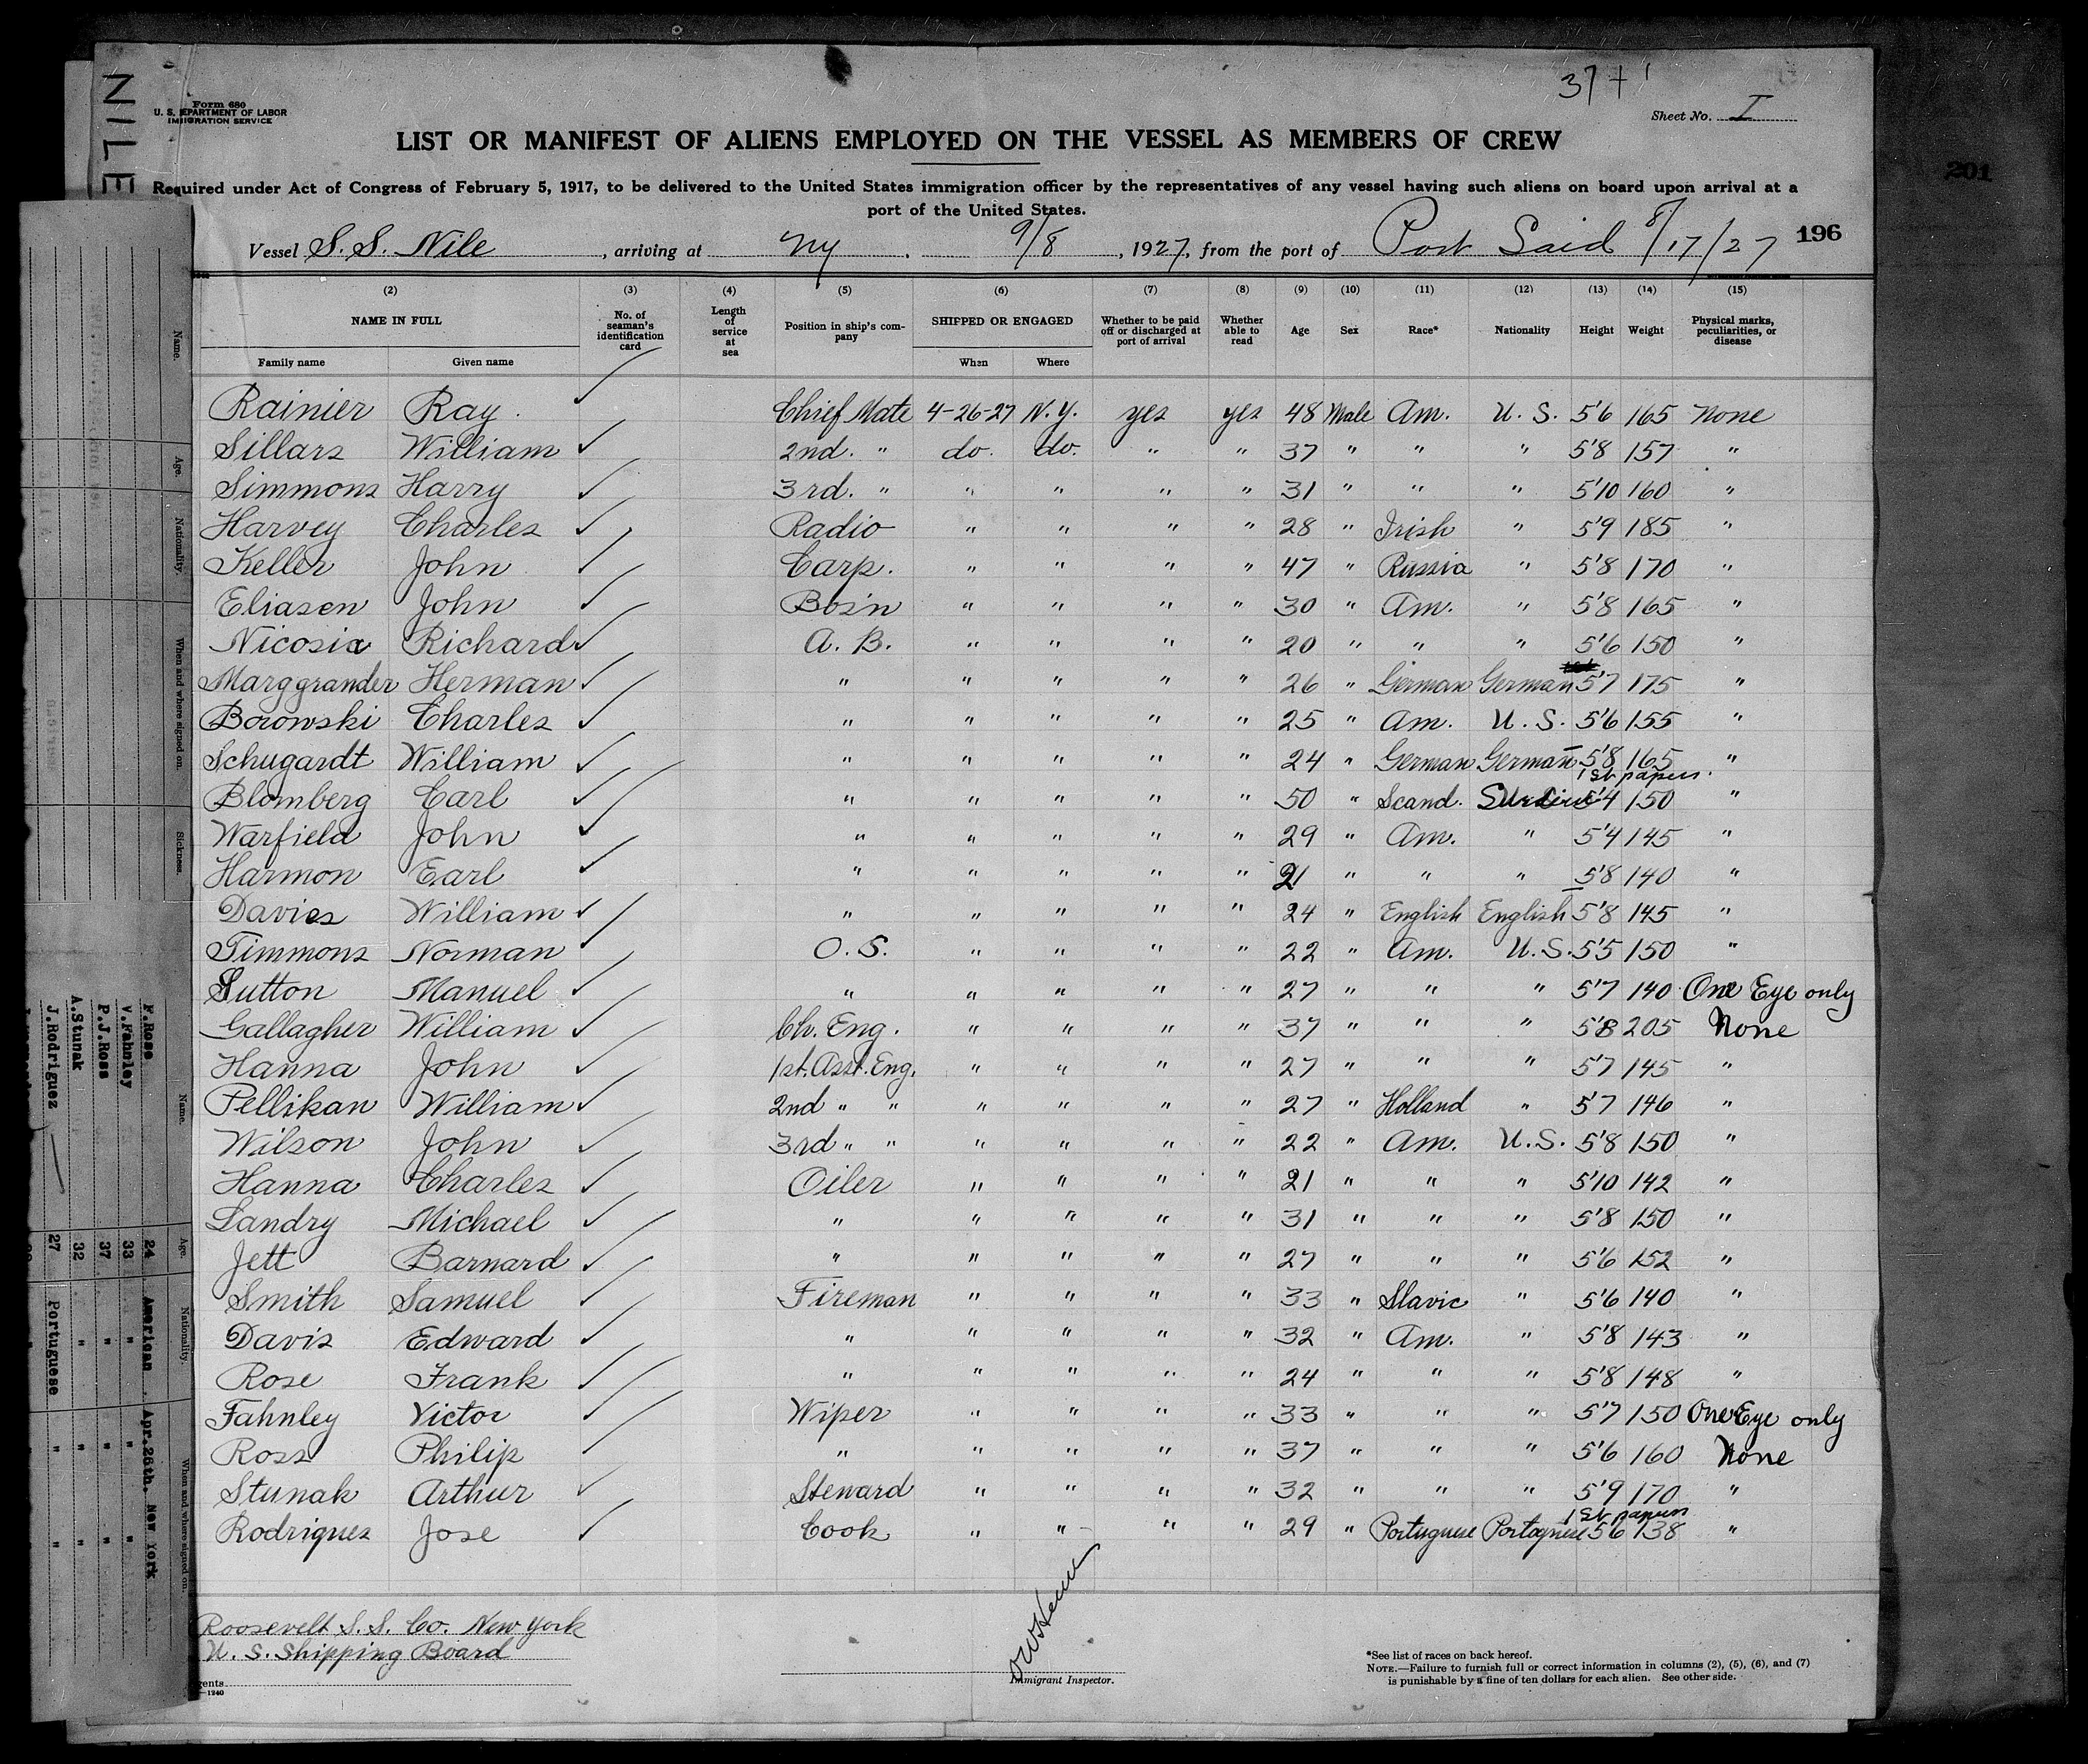 37 + 1
Form 680
U. S. DEPARTMENT OF LABOR
IMMIGRATION SERVICE
Sheet No. I
NILE
LIST OR MANIFEST OF ALIENS EMPLOYED ON THE VESSEL AS MEMBERS OF CREW
201
Required under Act of Congress of February 5, 1917, to be delivered to the United States immigration officer by the representatives of any vessel having such aliens on board upon arrival at a
port of the United States.
Vessel S. S. Nile, arriving at Ny, 9/8, 1927, from the port of Port Said 8/17/27 196
(2) (3) (4) (5) (6) (7) (8) (9) (10) (11) (12) (13) (14) (15)
NAME IN FULL No. of seaman's identification card Length of service at sea Position in ship's company SHIPPED OR ENGAGED Whether to be paid off or discharged at port of arrival Whether able to read Age Sex Race* Nationality Height Weight Physical marks, peculiarities, or disease
Family name Given name When Where
Rainier Ray. Chief Mate 4-26-27 N.Y. yes yes 48 Male Am. U. S. 5'6 165 None
Sillars William 2nd. " do. do. " " 37 " " " 5'8 157 "
Simmons Harry 3rd. " " " " " 31 " " " 5'10 160 "
Harvey Charles Radio " " " " 28 " Irish " 5'9 185 "
Keller John Carp. " " " " 47 " Russia " 5'8 170 "
Eliasen John Bos'n " " " " 30 " Am. " 5'8 165 "
Nicosia Richard A. B. " " " " 20 " " " 5'6 150 "
Marggrander Herman " " " " " 26 " German German 5'7 175 "
Borowski Charles " " " " " 25 " Am. U. S. 5'6 155 "
Schugardt William " " " " " 24 " German German 5'8 165 "
1st papers.
Blomberg Carl " " " " " 50 " Scand. 5'4 150 "
Warfield John " " " " " 29 " Am. " 5'4 145 "
Harmon Earl " " " " " 21 " " " 5'8 140 "
Davies William " " " " " 24 " English English 5'8 145 "
Timmons Norman O. S. " " " " 22 " Am. U.S. 5'5 150 "
Sutton Manuel " " " " " 27 " " " 5'7 140 One Eye only
Gallagher William Ch. Eng. " " " " 37 " " " 5'8 205 None
Hanna John 1st. Asst. Eng. " " " " 27 " " " 5'7 145 "
Pellikan William 2nd " " " " " " 27 " Holland " 5'7 146 "
Wilson John 3rd " " " " " " 22 " Am. U.S. 5'8 150 "
Hanna Charles Oiler " " " " 21 " " " 5'10 142 "
Landry Michael " " " " " 31 " " " 5'8 150 "
Jett Barnard " " " " " 27 " " " 5'6 152 "
Smith Samuel Fireman " " " " 33 " Slavic " 5'6 140 "
Davis Edward " " " " " 32 " Am. " 5'8 143 "
Rose Frank " " " " " 24 " " " 5'8 148 "
Fahnley Victor Wiper " " " " 33 " " " 5'7 150 One Eye only
Ross Philip " " " " " 37 " " " 5'6 160 None
Stunak Arthur Steward " " " " 32 " " " 5'9 170 "
1st papers
Rodriques Jose Cook " " " " 29 " Portuguese Portuguese 5'6 138 "
Roosevelt S. S. Co. New York
U. S. Shipping Board
gents
—1240
Immigrant Inspector.
*See list of races on back hereof.
NOTE.—Failure to furnish full or correct information in columns (2), (5), (6), and (7)
is punishable by a fine of ten dollars for each alien. See other side.
Name. Age. Nationality. When and where signed on. Sickness.
Name. Age. Nationality. When and where signed on.
F.Rose 24 American Apr.26th. New York
V.Fahnley 33 " " "
P.J.Ross 37 " " "
A.Stunak 32 " " "
J.Rodriguez 27 Portuguese " "